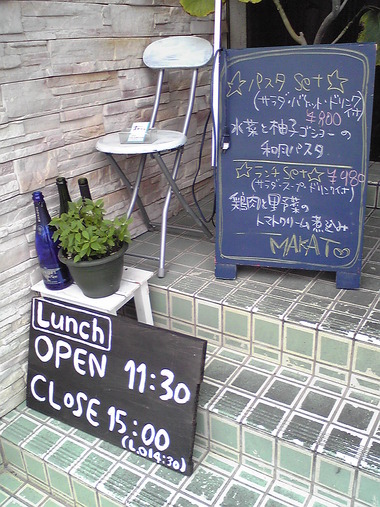 ☆パスタ Set☆
(サラダ・バケット・ドリンク付
¥900
水菜と柚子ゴショーの
和風パスタ
☆ランチ Set☆ ¥980
(サラダ・スープ・ドリンク付)
鶏肉と野菜の
トマトクリーム煮込み
MAKAT♡
Lunch
OPEN 11:30
CLOSE 15:00
(L.O14:30)